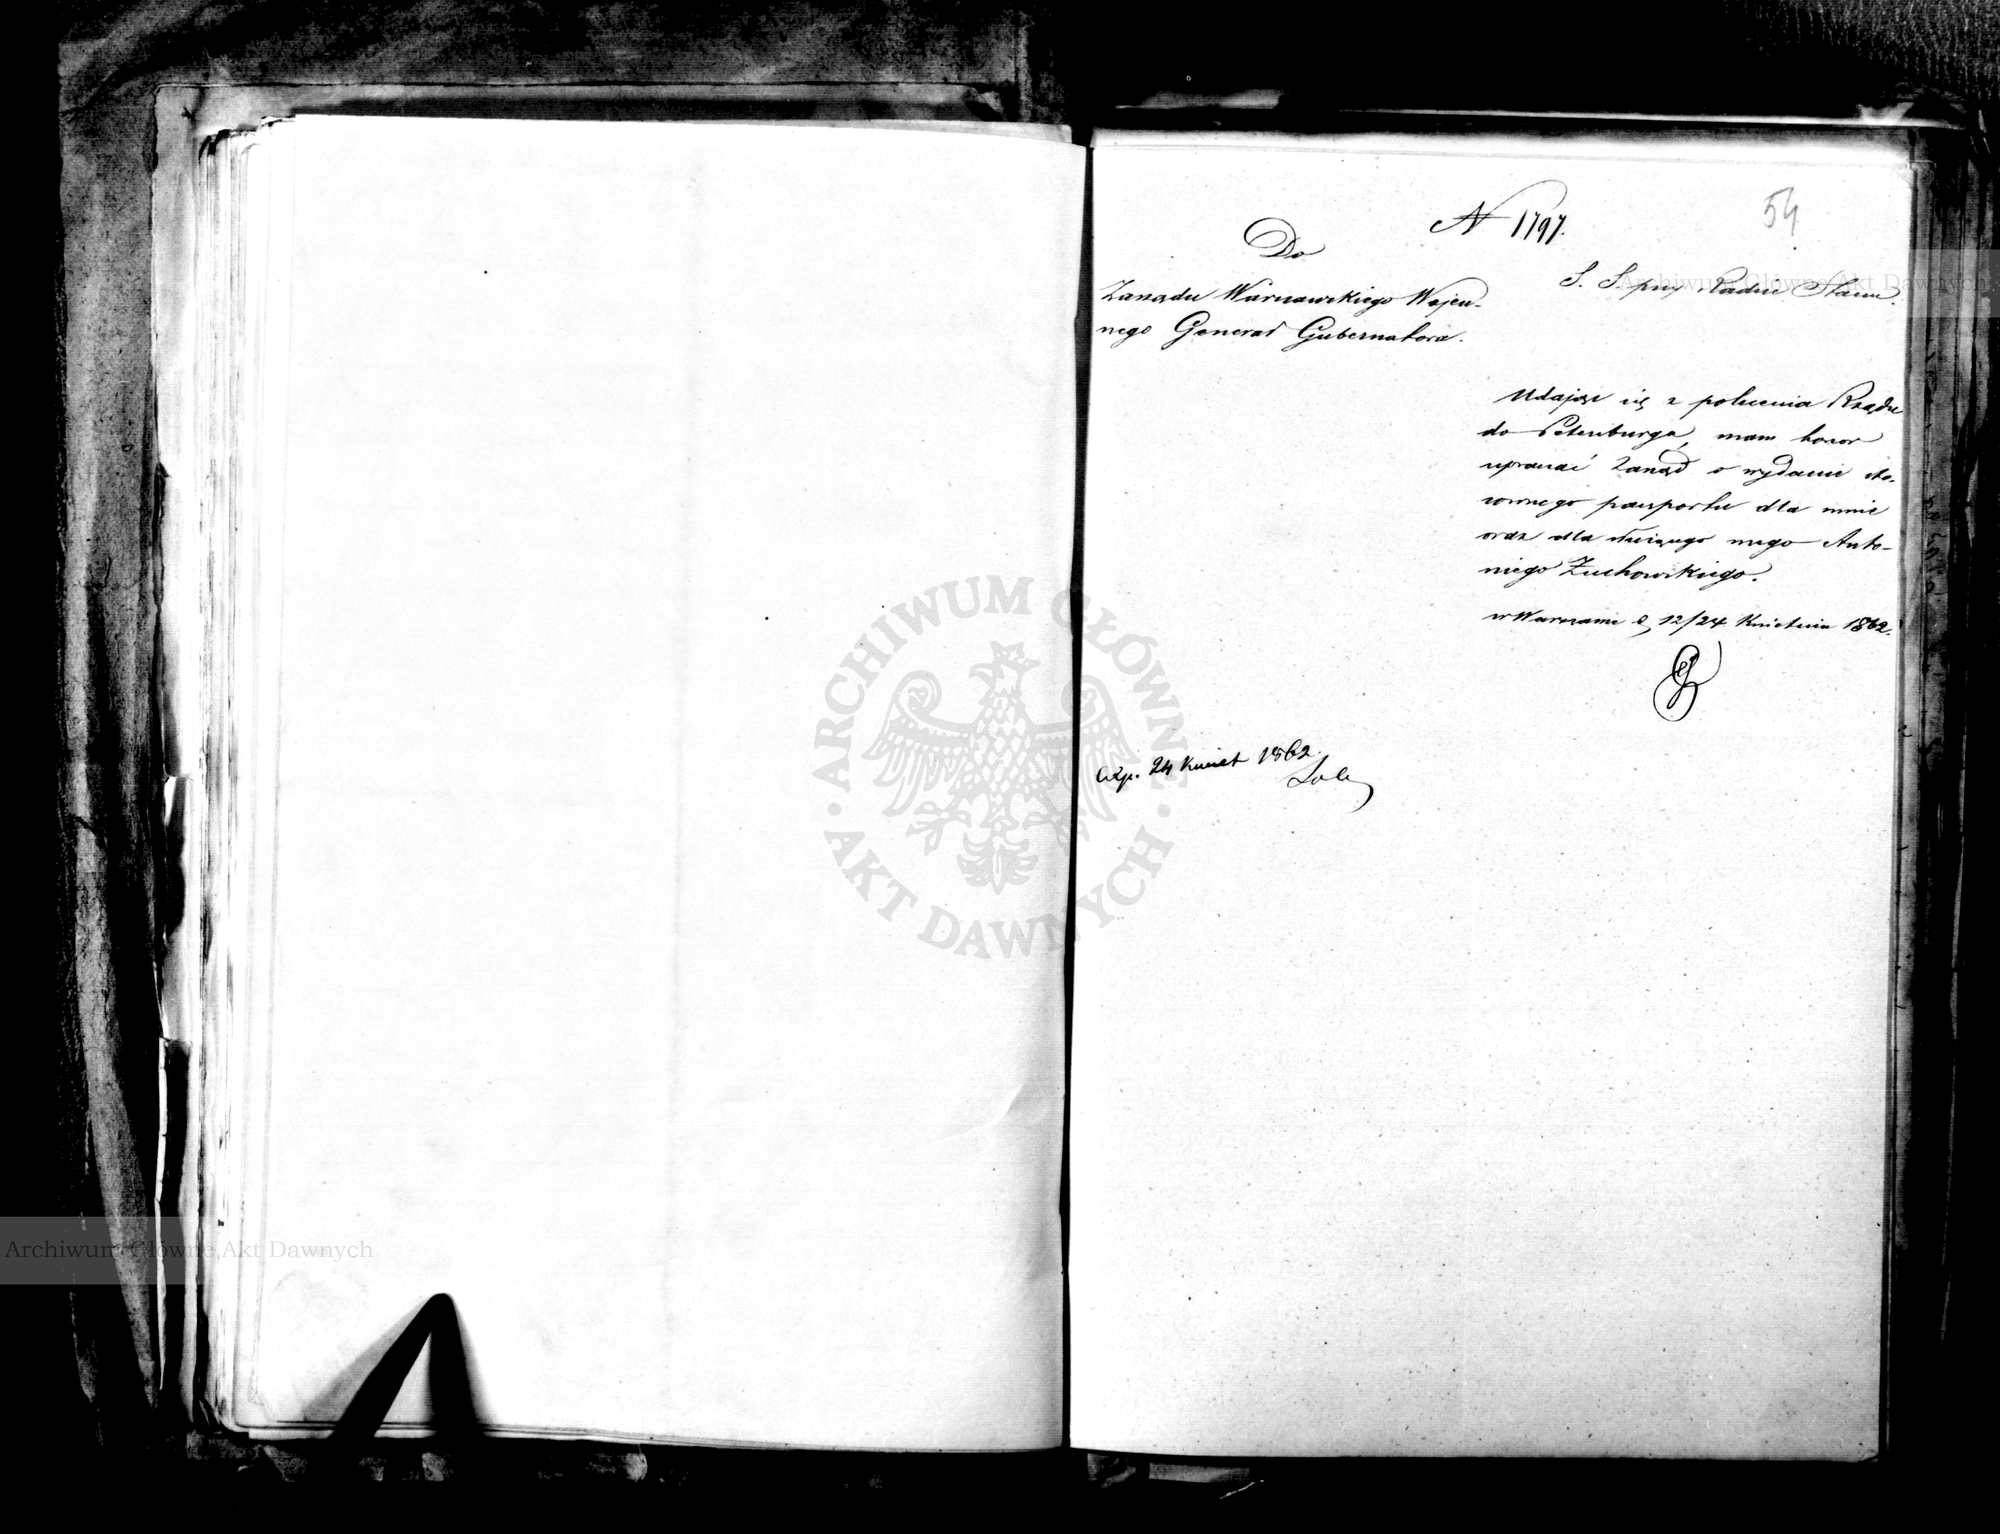 54
N 1797.
Do
Zarządu Warszawskiego Wojen-
nego Generał Gubernatora.
S. S. przy Radzie Stanu.
Udając się z polecenia Rządu
do Petersburga, mam honor
upraszać Zarząd o wydanie sto-
sownego paszportu dla mnie
oraz dla służącego mego Anto-
niego Żuchowskiego.
w Warszawie d. 12/24 Kwietnia 1862.
Exp. 24 Kwiet 1862.
ARCHIWUM GŁÓWNE
AKT DAWNYCH
Archiwum Główne Akt Dawnych
Archiwum Główne Akt Dawnych